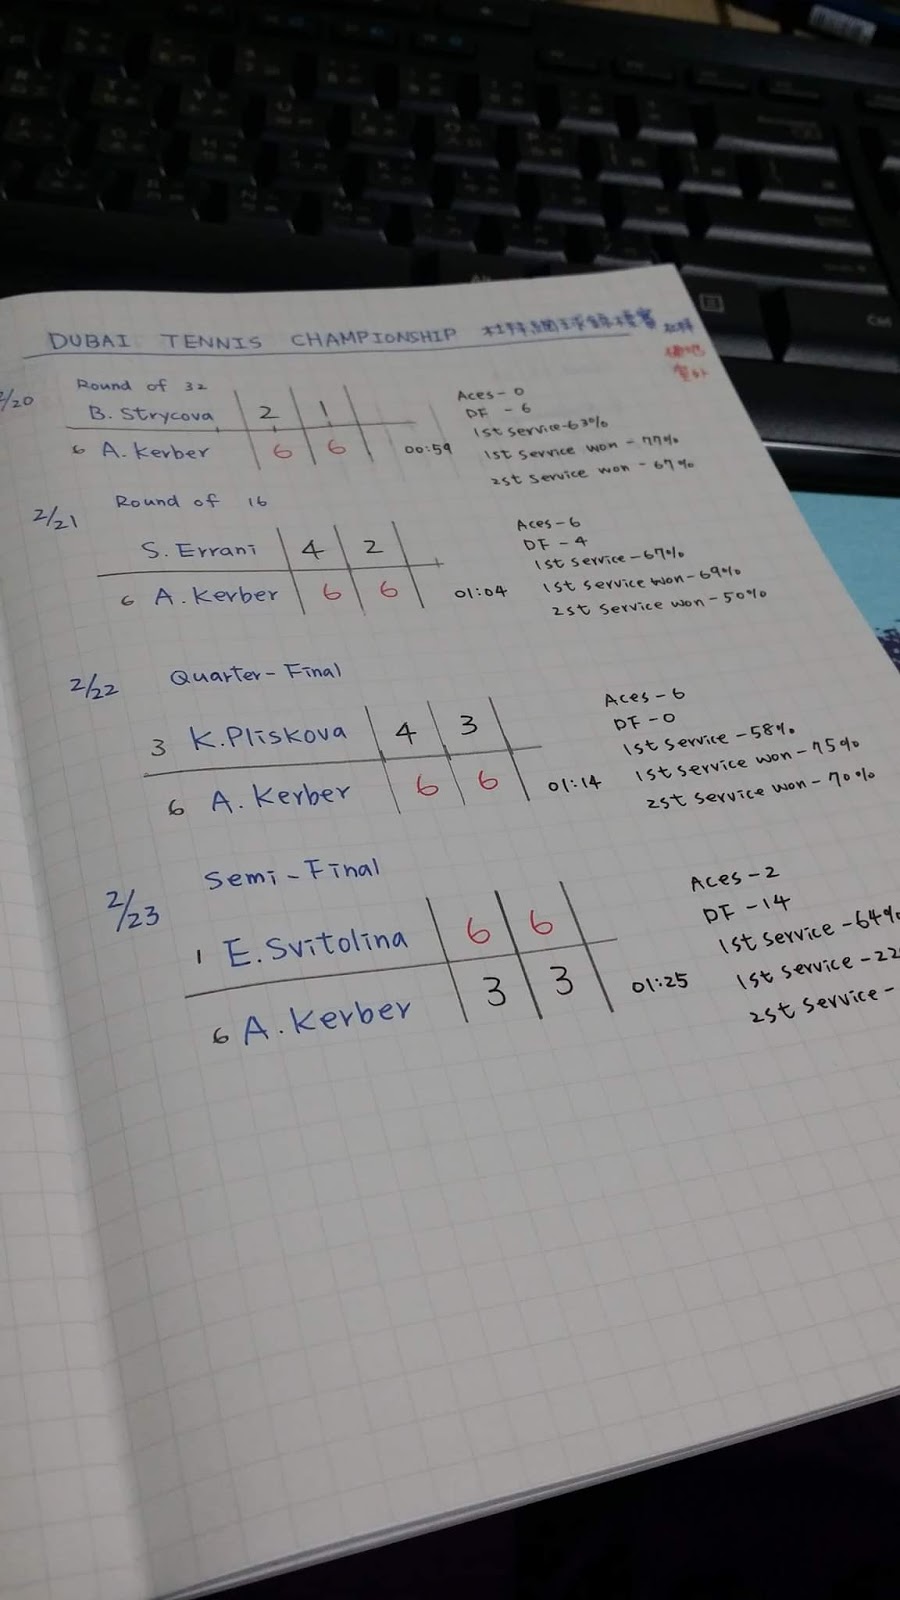 DUBAI TENNIS CHAMPIONSHIP 杜拜網球錦標賽
2/20 Round of 32
B. Strycova 2 1
6 A. Kerber 6 6 00:59
Aces-0
DF - 6
1st service-63%
1st service won - 77%
2st service won - 67%
2/21 Round of 16
S. Errani 4 2
6 A. Kerber 6 6 01:04
Aces-6
DF-4
1st service-67%
1st service won-69%
2st service won-50%
2/22 Quarter-Final
3 K.Pliskova 4 3
6 A. Kerber 6 6 01:14
Aces-6
DF-0
1st service-58%
1st service won-75%
2st service won-70%
2/23 Semi-Final
1 E.Svitolina 6 6
6 A.Kerber 3 3 01:25
Aces-2
DF-14
1st service-64%
1st service-22
2st service-
Ctrl